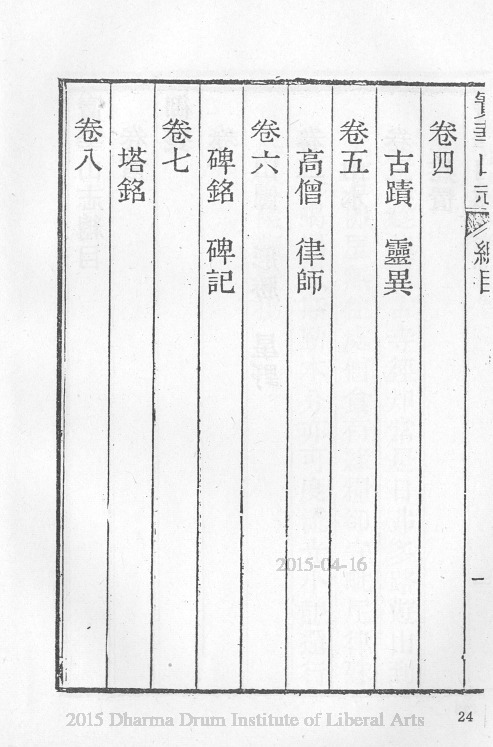 寶華山志 總目 一
卷四
古蹟 靈異
卷五
高僧 律師
卷六
碑銘 碑記
卷七
塔銘
卷八
2015-04-16
2015 Dharma Drum Institute of Liberal Arts
24